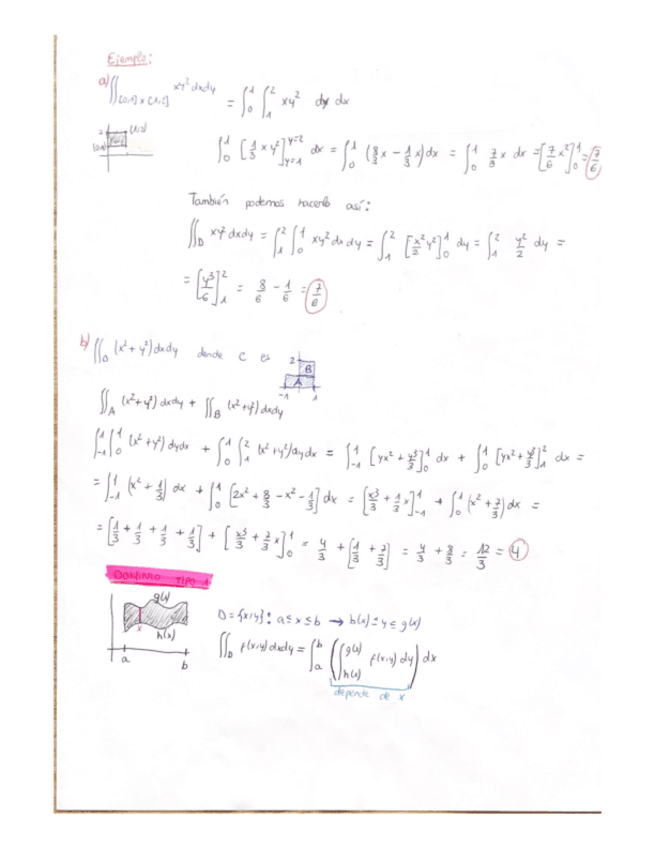 Ejemplo:
a) ∬[0,1]x[1,2] xy² dxdy = ∫₀¹ ∫₁² xy² dy dx
2 (1,2)
∫₀¹ [1/3 xy³]y=1^y=2 dx = ∫₀¹ (8/3 x − 1/3 x) dx = ∫₀¹ 7/3 x dx = [7/6 x²]₀¹ = 7/6
También podemos hacerlo así:
∬D xy² dxdy = ∫₁² ∫₀¹ xy² dx dy = ∫₁² [x²/2 y²]₀¹ dy = ∫₁² y²/2 dy =
= [y³/6]₁² = 8/6 − 1/6 = 7/6
b) ∬D (x² + y²) dxdy donde C es
2 B
A
-1 1
∬A (x² + y²) dxdy + ∬B (x² + y²) dxdy
∫₋₁¹ ∫₀¹ (x² + y²) dydx + ∫₀¹ ∫₁² (x² + y²) dydx = ∫₋₁¹ [yx² + y³/3]₀¹ dx + ∫₀¹ [yx² + y³/3]₁² dx =
= ∫₋₁¹ (x² + 1/3) dx + ∫₀¹ [2x² + 8/3 − x² − 1/3] dx = [x³/3 + 1/3 x]₋₁¹ + ∫₀¹ (x² + 7/3) dx =
= [1/3 + 1/3 + 1/3 + 1/3] + [x³/3 + 7/3 x]₀¹ = 4/3 + [1/3 + 7/3] = 4/3 + 8/3 = 12/3 = 4
DOMINIO TIPO 1
g(x)
x h(x)
a b
D = {x,y}: a ≤ x ≤ b → h(x) ≤ y ≤ g(x)
∬D f(x,y) dxdy = ∫ₐᵇ (∫h(x)^g(x) f(x,y) dy) dx
depende de x